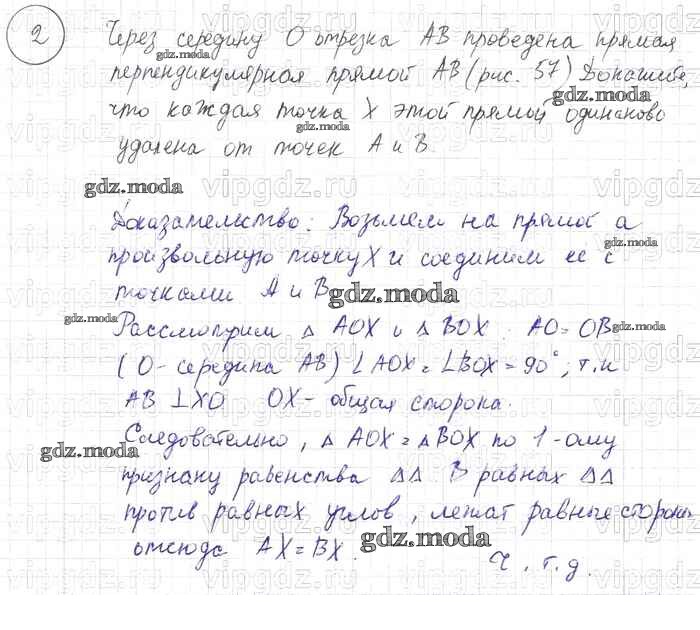 2
Через середину О отрезка АВ проведена прямая
перпендикулярная прямой АВ (рис. 57) Докажите,
что каждая точка X этой прямой одинаково
удалена от точек А и В.
Доказательство: Возьмем на прямой а
произвольную точку X и соединим ее с
точками А и В
Рассмотрим △ AOX и △ BOX : AO = OB
(О - середина АВ) ∠AOX = ∠BOX = 90°, т.к
AB ⊥ XO OX - общая сторона.
Следовательно, △ AOX = △ BOX по 1-ому
признаку равенства △△ В равных △△
против равных углов, лежат равные стороны
отсюда AX = BX.
Ч.т.д.
gdz.moda
gdz.moda
gdz.moda
gdz.moda
gdz.moda
gdz.moda
gdz.moda
gdz.moda
gdz.moda
gdz.moda
vipgdz.ru